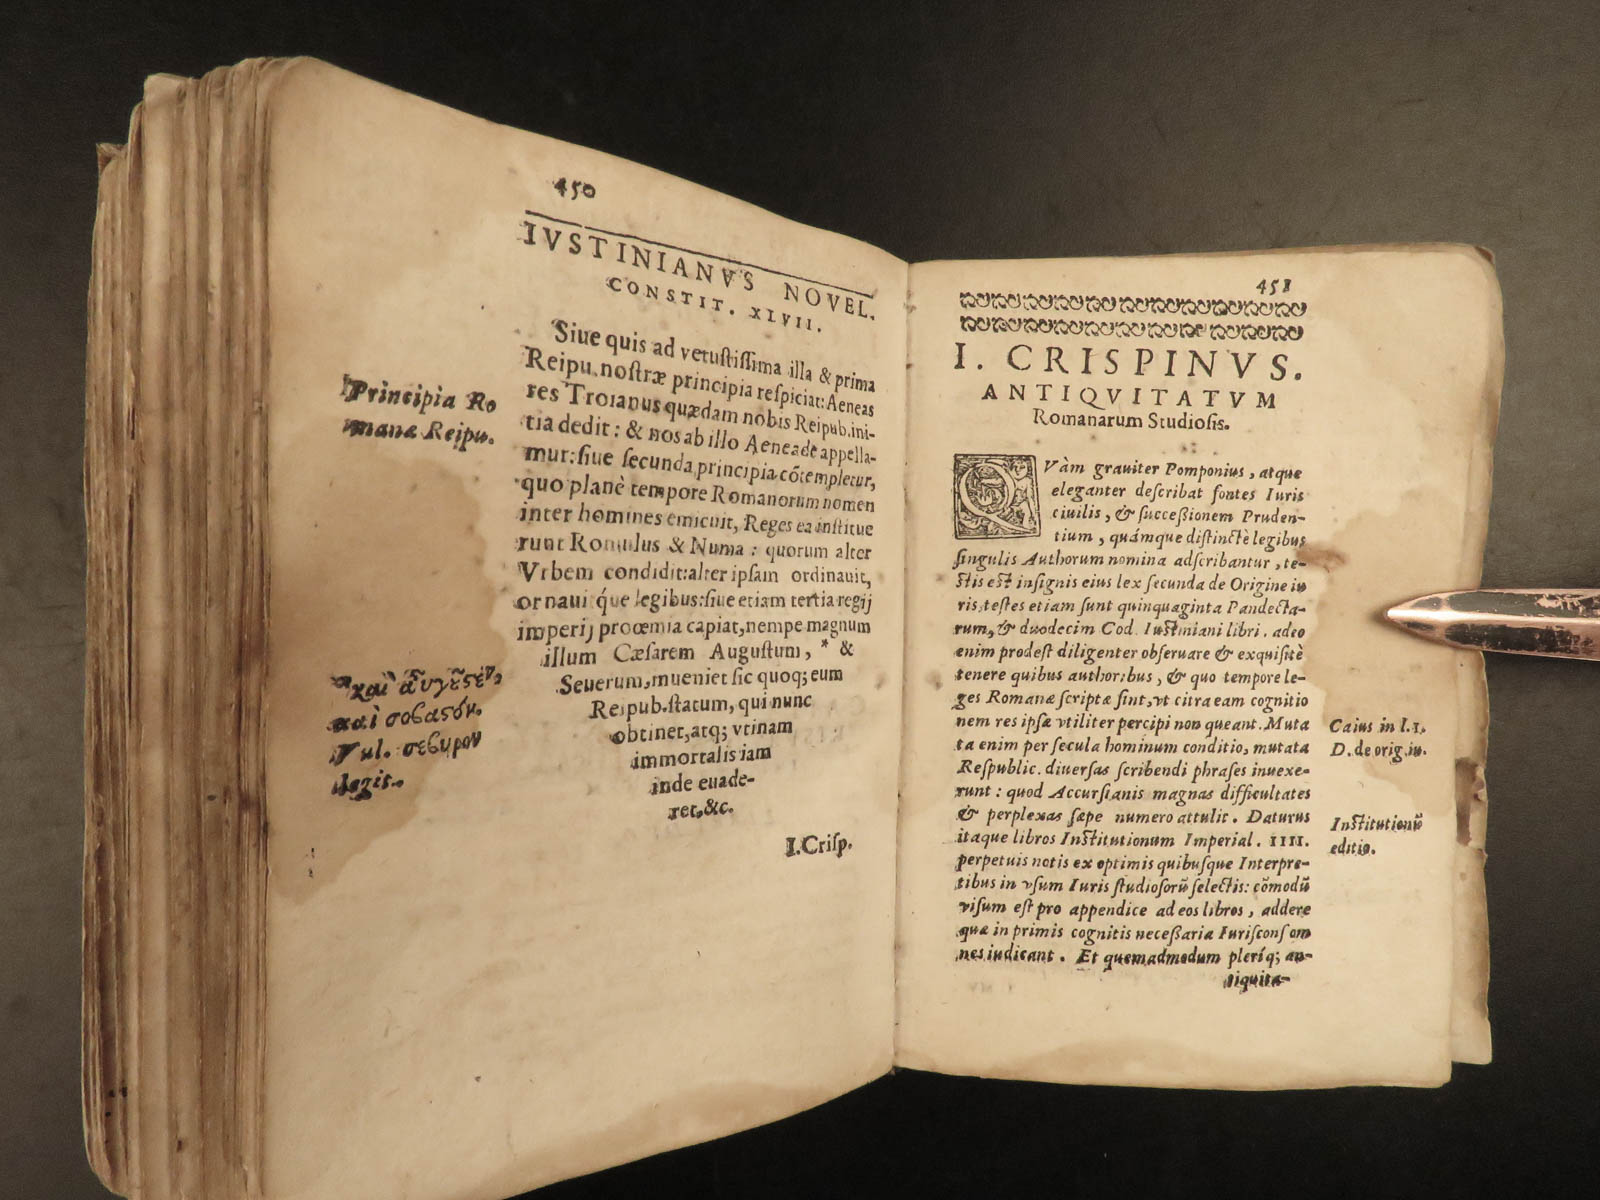 450
IVSTINIANVS NOVEL.
CONSTIT. XLVII.
Siue quis ad vetustissima illa & prima
Reipu. nostræ principia respiciat: Aeneas
res Troianus quædam nobis Reipub. ini-
tia dedit: & nos ab illo Aeneadę appella-
mur: siue secunda principia cōtempletur,
quo planè tempore Romanorum nomen
inter homines emicuit, Reges ea institue
runt Romulus & Numa: quorum alter
Vrbem condidit: alter ipsam ordinauit,
ornauitq́ue legibus: siue etiam tertia regij
imperij proœmia capiat, nempe magnum
illum Cæsarem Augustum, * &
Seuerum, inueniet sic quoq; eum
Reipub. statum, qui nunc
obtinet, atq; vtinam
immortalis iam
inde euade-
ret, &c.
I. Crisp.
Principia Ro
manæ Reipu.
σεβυρον
legit.
458
I. CRISPINVS.
ANTIQVITATVM
Romanarum Studiosis.
QVàm grauiter Pomponius, atque
eleganter describat fontes Iuris
ciuilis, & successionem Pruden-
tium, quámque distinctè legibus
singulis Authorum nomina adscribantur, te-
stis est insignis eius lex secunda de Origine iu
ris, testes etiam sunt quinquaginta Pandecta-
rum, & duodecim Cod. Iustiniani libri. adeo
enim prodest diligenter obseruare & exquisitè
tenere quibus authoribus, & quo tempore le-
ges Romanæ scriptæ sint, vt citra eam cognitio
nem res ipsæ vtiliter percipi non queant. Muta
ta enim per secula hominum conditio, mutata
Respublic. diuersas scribendi phrases inuexe-
runt: quod Accursianis magnas difficultates
& perplexas sæpe numero attulit. Daturus
itaque libros Institutionum Imperial. IIII.
perpetuis notis ex optimis quibusque Interpre-
tibus in vsum Iuris studiosorū selectis: cōmodū
visum est pro appendice ad eos libros, addere
quæ in primis cognitis necessaria Iurisconsom
nes iudicant. Et quemadmodum pleríq; an-
tiquita-
Caius in l. 1.
D. de orig. iu.
Institutionū
editio.